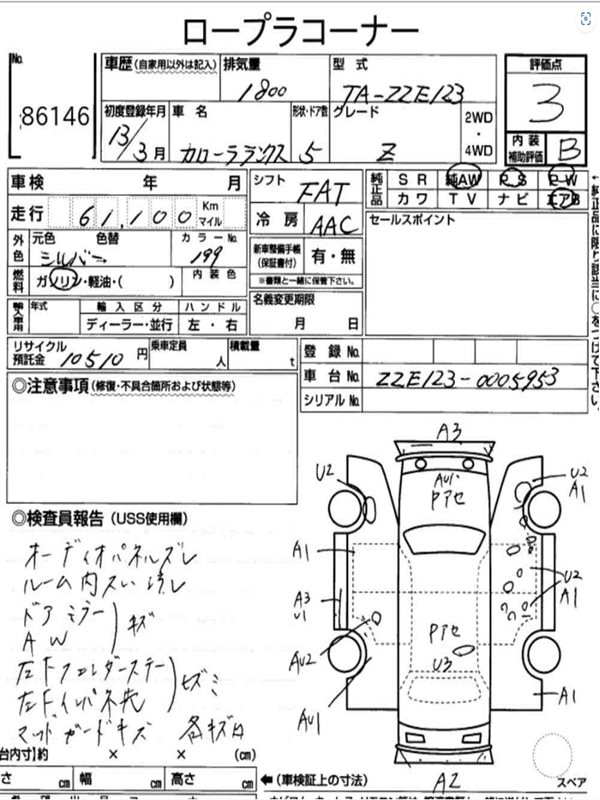 ロープラコーナー
No. 86146
車歴 (自家用以外は記入) 排気量 1800 型式 TA-ZZE123
初度登録年月 13年3月 車名 カローラランクス 形状・ドア数 5 グレード Z 2WD・4WD
評価点 3
内装補助評価 B
車検 年 月
走行 61,100 Km マイル
外色 元色 シルバー 色替 カラーNo. 199
燃料 ガソリン・軽油・( ) 内装色
輸入車用 年式 輸入区分 ハンドル
ディーラー・並行 左・右
リサイクル預託金 10510円 乗車定員 人 積載量 t
シフト FAT
冷房 AAC
新車整備手帳(保証書付) 有・無
※書類と一緒に保管下さい。
名義変更期限
月 日
純正品 SR 純AW P/S P/W
カワ TV ナビ エアB
セールスポイント
登録No.
車台No. ZZE123-0005953
シリアルNo.
◎注意事項(修復・不具合箇所および状態等)
◎検査員報告(USS使用欄)
オーディオパネルズレ
ドアミラー
AW
キズ
左Fフェンダーステー
左Fインパネ先
マッドガードキズ
A3
U2
AU1
Pアセ
U2
A1
A1
A3
U1
U2
A1
AU2
Pアセ
U3
AU1
A1
A2
スペア
【荷台内寸】約 × × (cm)
さ cm 幅 cm 高さ cm
←(車検証上の寸法)